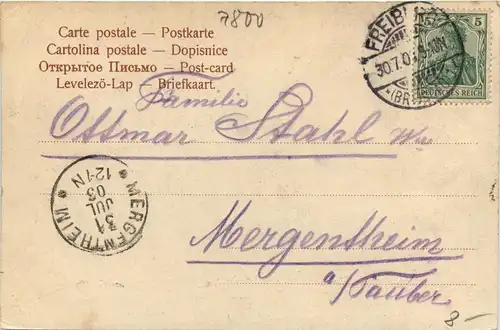 7800
Carte postale — Postkarte
Cartolina postale — Dopisnice
Открытое Письмо — Post-card
Levelező-Lap — Briefkaart.
5
DEUTSCHES REICH
FREIB
30.7.0
Familie
Ottmar Stahl
MERGENTHEIM
31
JUL
03
12-1N
Mergentheim
a/Tauber
8-